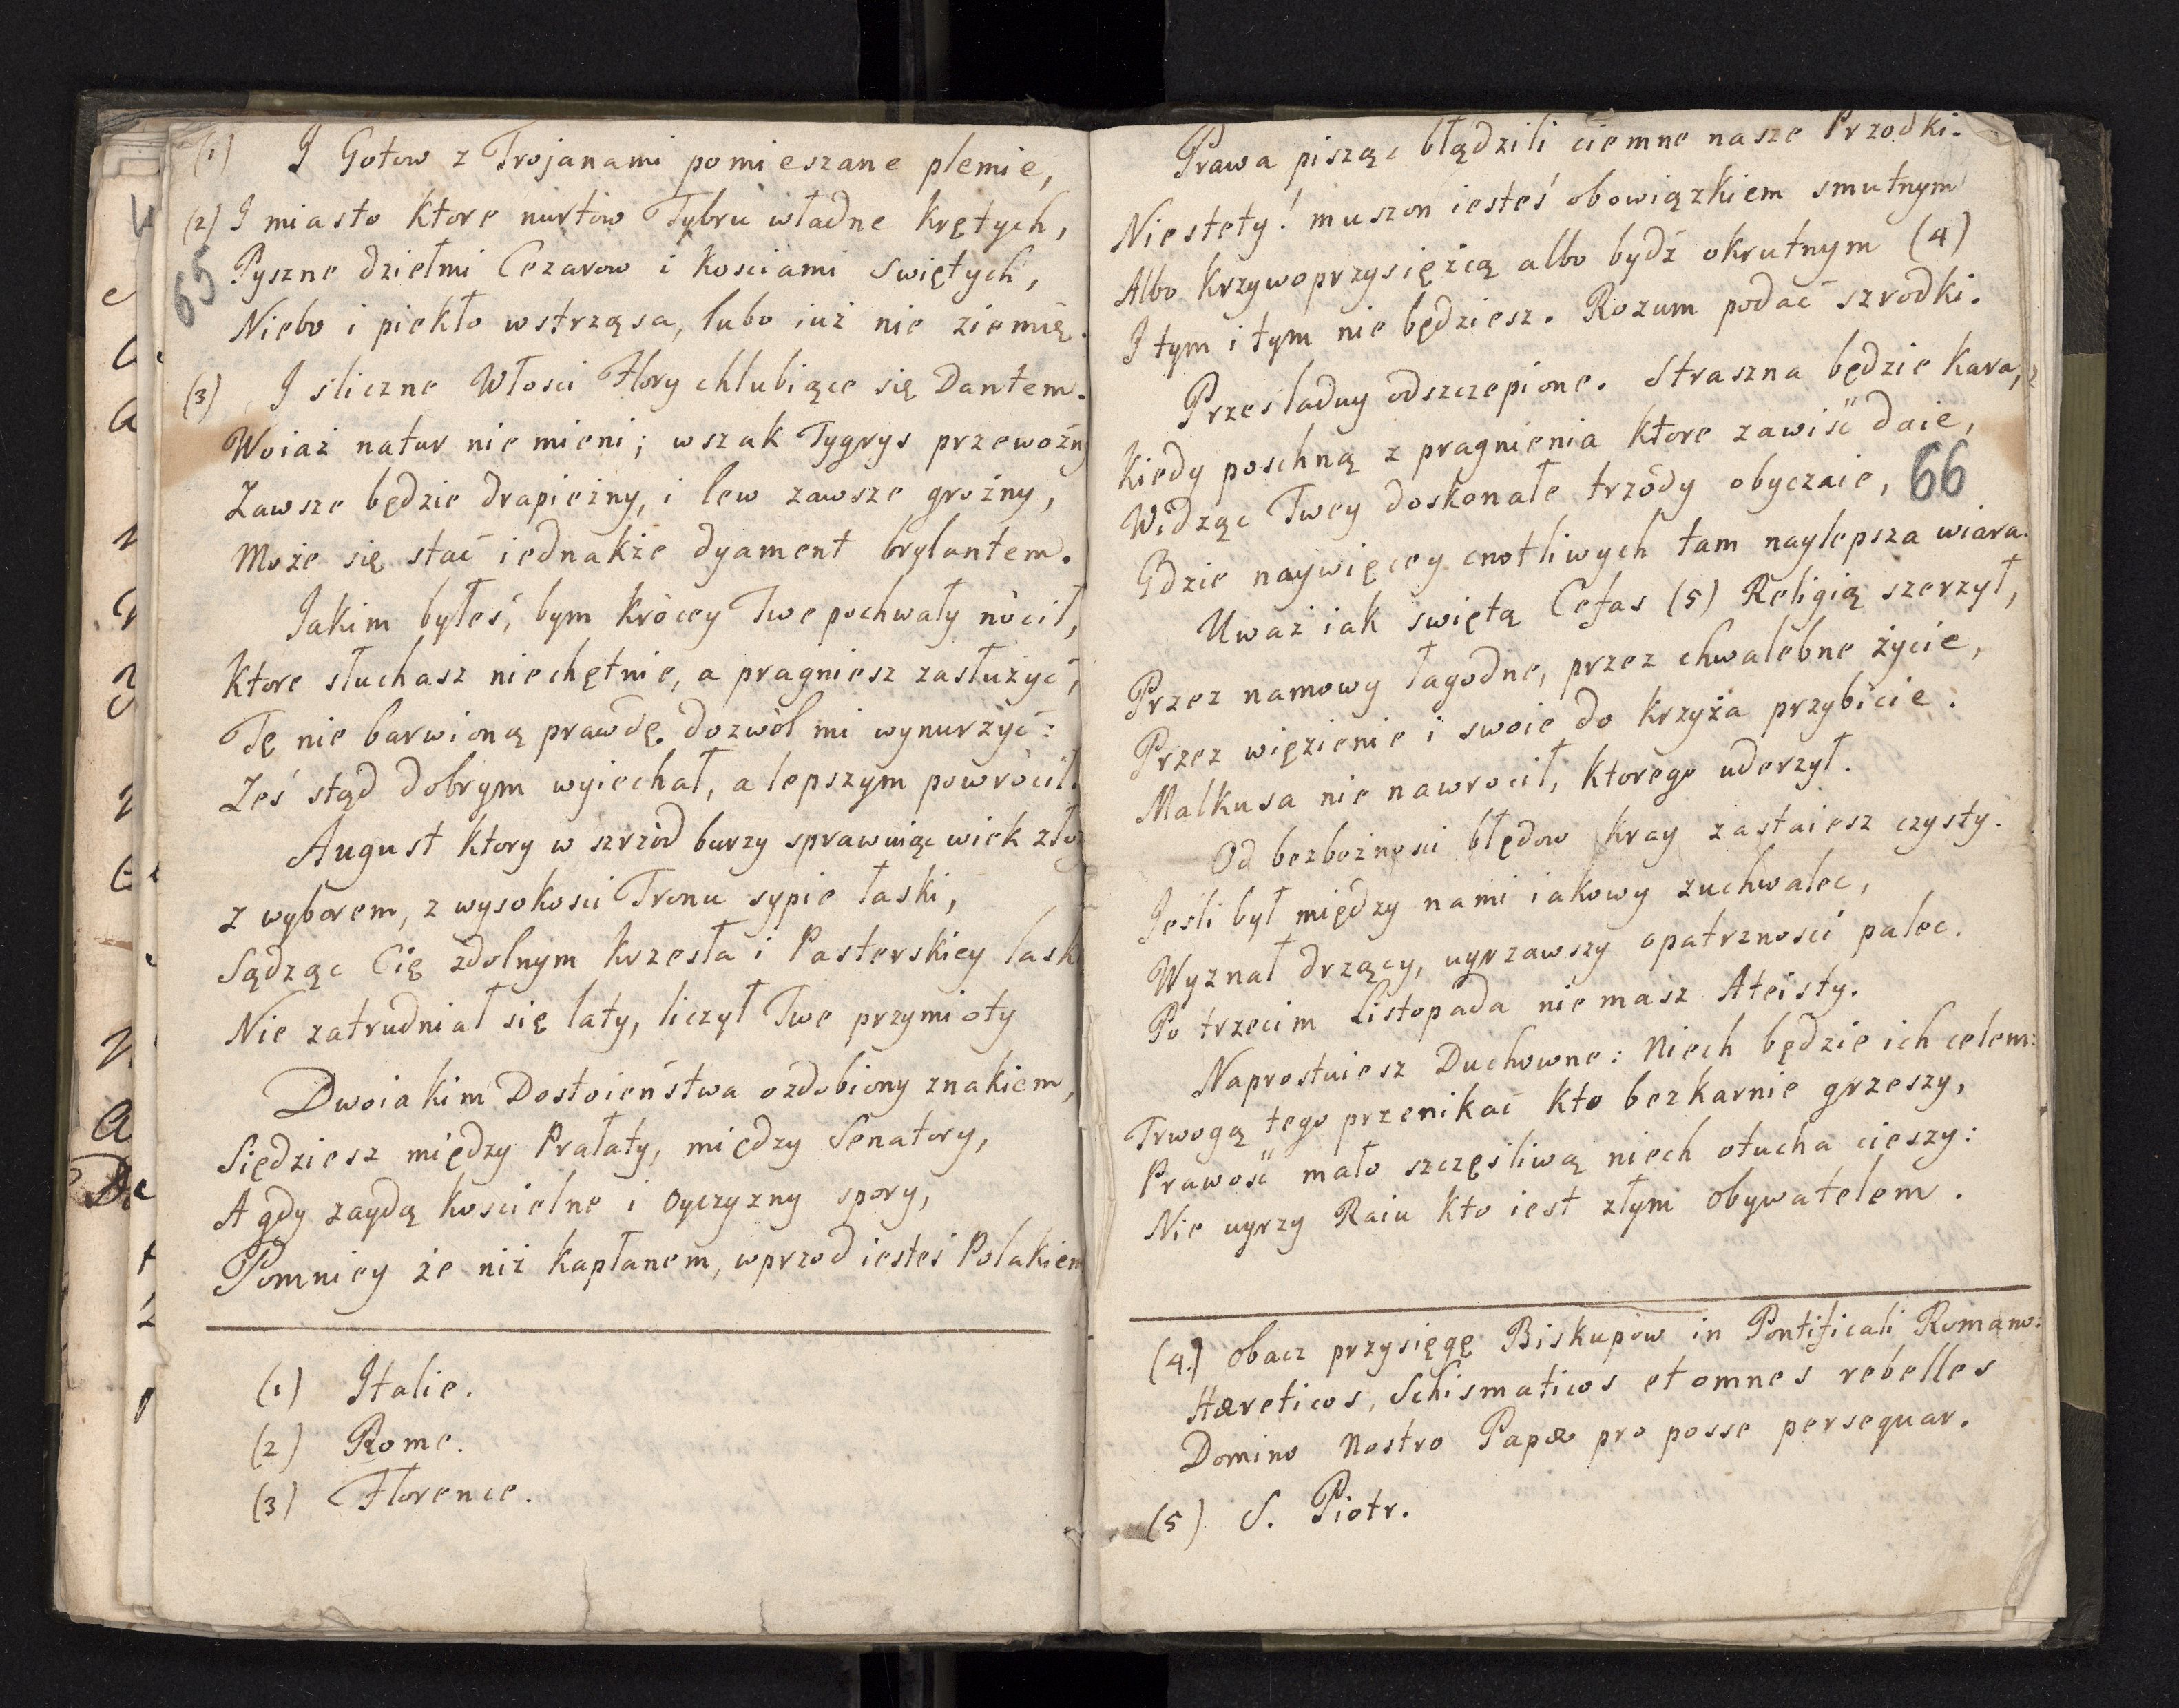 (1) I Gotow z Trojanami pomieszane plemie,
(2) I miasto ktore nurtow Tybru władne krętych,
65
Pyszne dziełmi Cezarow i kosciami Swiętych,
Niebo i piekło wstrząsa, lubo iuż nie ziemię.
(3) I sliczne Włosci Flory chlubiące się Dantem.
Woiaż natur nie mieni; wszak Tygrys przewoźny
Zawsze będzie drapieżny, i lew zawsze groźny,
Może się stać iednakże dyament brylantem.
Iakim byłeś, bym krócey Twe pochwały nócił,
Ktore słuchasz niechętnie, a pragniesz zasłużyć,
Tę nie barwioną prawdę dozwól mi wynurzyć:
Żeś stąd dobrym wyiechał, a lepszym powrócił.
August ktory w szrzód burzy sprawuiąc wiek
z wyborem, z wysokosci Tronu sypie łaski,
Sądząc Cię zdolnym krzesła i Pasterskiey lask
Nie zatrudniał się laty, liczył Twe przymioty
Dwoiakim Dostoieństwa ozdobiony znakiem,
Siędziesz między Prałaty, między Senatory,
A gdy zaydą koscielne i oyczyzny spory,
Pomniey że niż kapłanem, wprzod iesteś Polakiem
(1) Italie.
(2) Rome.
(3) Florence.
Prawa pisząc błądzili ciemne nasze Przodki.
Niestety! muszon iesteś obowiązkiem smutnym
Albo krzywoprzysięźcą albo bydź okrutnym (4)
I tym i tym nie będziesz. Rozum podać szrodki.
Przesladuy odszczepione. Straszna będzie kara,
Kiedy poschną z pragnienia ktore zawiść daie,
66
Widząc Twey doskonałe trzódy obyczaie,
Gdzie naywięcey cnotliwych tam naylepsza wiara.
Uważ iak swiętą Cefas (5) Religią szerzył,
Przez namowy łagodne, przez chwalebne życie,
Przez więzienie i swoie do krzyża przybicie.
Malkusa nie nawrocił, ktorego uderzył.
Od bezbożnosci błędow kray zastaiesz czysty.
Iesli był między nami iakowy zuchwalec,
Wyznał drzący, uyrzawszy opatrznosci palec.
Po trzecim Listopada nie masz Ateisty.
Naprostuiesz Duchowne: Niech będzie ich celem:
Trwogą tego przenikać kto bezkarnie grzeszy,
Prawość mało szczęsliwą niech otucha cieszy:
Nie uyrzy Raiu kto iest złym obywatelem.
(4.) obacz przysięgę Biskupów in Pontificali Romano:
Hæreticos, Schismaticos et omnes rebelles
Domino Nostro Papæ pro posse persequar.
(5) S. Piotr.